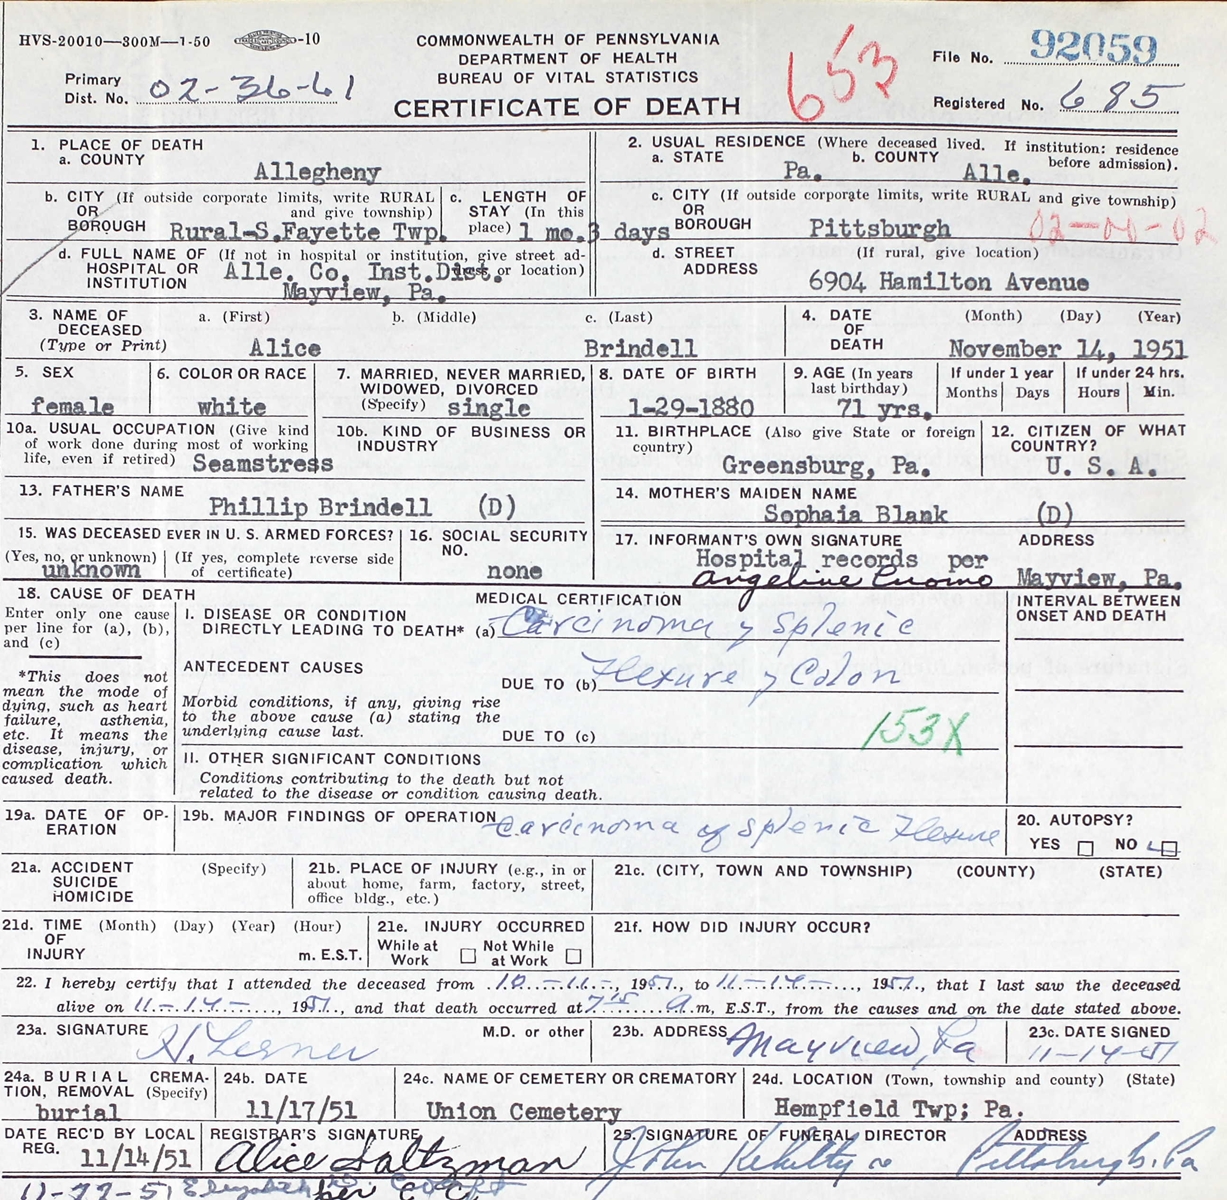 HVS-20010—300M—1-50 -10
COMMONWEALTH OF PENNSYLVANIA
DEPARTMENT OF HEALTH
BUREAU OF VITAL STATISTICS
CERTIFICATE OF DEATH
653
File No. 92059
Primary
Dist. No. 02-36-61
Registered No. 685
1. PLACE OF DEATH
a. COUNTY
Allegheny
2. USUAL RESIDENCE (Where deceased lived. If institution: residence before admission).
a. STATE Pa. b. COUNTY Alle.
b. CITY (If outside corporate limits, write RURAL
OR and give township)
BOROUGH Rural-S.Fayette Twp.
c. LENGTH OF
STAY (In this
place) 1 mo.3 days
c. CITY (If outside corporate limits, write RURAL and give township)
OR
BOROUGH Pittsburgh 02-00-02
d. FULL NAME OF (If not in hospital or institution, give street address or location)
HOSPITAL OR
INSTITUTION
Alle. Co. Inst.Dist.
Mayview, Pa.
d. STREET (If rural, give location)
ADDRESS
6904 Hamilton Avenue
3. NAME OF
DECEASED
(Type or Print)
a. (First) b. (Middle) c. (Last)
Alice Brindell
4. DATE
OF
DEATH
(Month) (Day) (Year)
November 14, 1951
5. SEX
female
6. COLOR OR RACE
white
7. MARRIED, NEVER MARRIED,
WIDOWED, DIVORCED
(Specify) single
8. DATE OF BIRTH
1-29-1880
9. AGE (In years
last birthday)
71 yrs.
If under 1 year
Months Days
If under 24 hrs.
Hours Min.
10a. USUAL OCCUPATION (Give kind
of work done during most of working
life, even if retired) Seamstress
10b. KIND OF BUSINESS OR
INDUSTRY
11. BIRTHPLACE (Also give State or foreign
country)
Greensburg, Pa.
12. CITIZEN OF WHAT
COUNTRY?
U. S. A.
13. FATHER'S NAME
Phillip Brindell (D)
14. MOTHER'S MAIDEN NAME
Sophaia Blank (D)
15. WAS DECEASED EVER IN U. S. ARMED FORCES?
(Yes, no, or unknown) (If yes, complete reverse side
of certificate)
unknown
16. SOCIAL SECURITY
NO.
none
17. INFORMANT'S OWN SIGNATURE ADDRESS
Hospital records per
Angeline Cuomo Mayview, Pa.
18. CAUSE OF DEATH
Enter only one cause
per line for (a), (b),
and (c)
*This does not
mean the mode of
dying, such as heart
failure, asthenia,
etc. It means the
disease, injury, or
complication which
caused death.
MEDICAL CERTIFICATION
I. DISEASE OR CONDITION
DIRECTLY LEADING TO DEATH* (a) Carcinoma of Splenic
ANTECEDENT CAUSES
DUE TO (b) Flexure of Colon
Morbid conditions, if any, giving rise
to the above cause (a) stating the
underlying cause last.
DUE TO (c)
153X
II. OTHER SIGNIFICANT CONDITIONS
Conditions contributing to the death but not
related to the disease or condition causing death.
INTERVAL BETWEEN
ONSET AND DEATH
19a. DATE OF OP-
ERATION
19b. MAJOR FINDINGS OF OPERATION
Carcinoma of Splenic Flexure
20. AUTOPSY?
YES NO
21a. ACCIDENT (Specify)
SUICIDE
HOMICIDE
21b. PLACE OF INJURY (e.g., in or
about home, farm, factory, street,
office bldg., etc.)
21c. (CITY, TOWN AND TOWNSHIP) (COUNTY) (STATE)
21d. TIME (Month) (Day) (Year) (Hour)
OF
INJURY m. E.S.T.
21e. INJURY OCCURRED
While at Not While
Work at Work
21f. HOW DID INJURY OCCUR?
22. I hereby certify that I attended the deceased from 10-11-, 1951, to 11-14-, 1951, that I last saw the deceased
alive on 11-14-, 1951, and that death occurred at 7:15 a m, E.S.T., from the causes and on the date stated above.
23a. SIGNATURE M.D. or other
H. Lerner
23b. ADDRESS
Mayview, Pa
23c. DATE SIGNED
11-14-51
24a. BURIAL CREMA-
TION, REMOVAL (Specify)
burial
24b. DATE
11/17/51
24c. NAME OF CEMETERY OR CREMATORY
Union Cemetery
24d. LOCATION (Town, township and county) (State)
Hempfield Twp; Pa.
DATE REC'D BY LOCAL
REG. 11/14/51
REGISTRAR'S SIGNATURE
Alice Saltzman
25. SIGNATURE OF FUNERAL DIRECTOR ADDRESS
John Pittsburgh. Pa
11-22-51 Elizabeth per